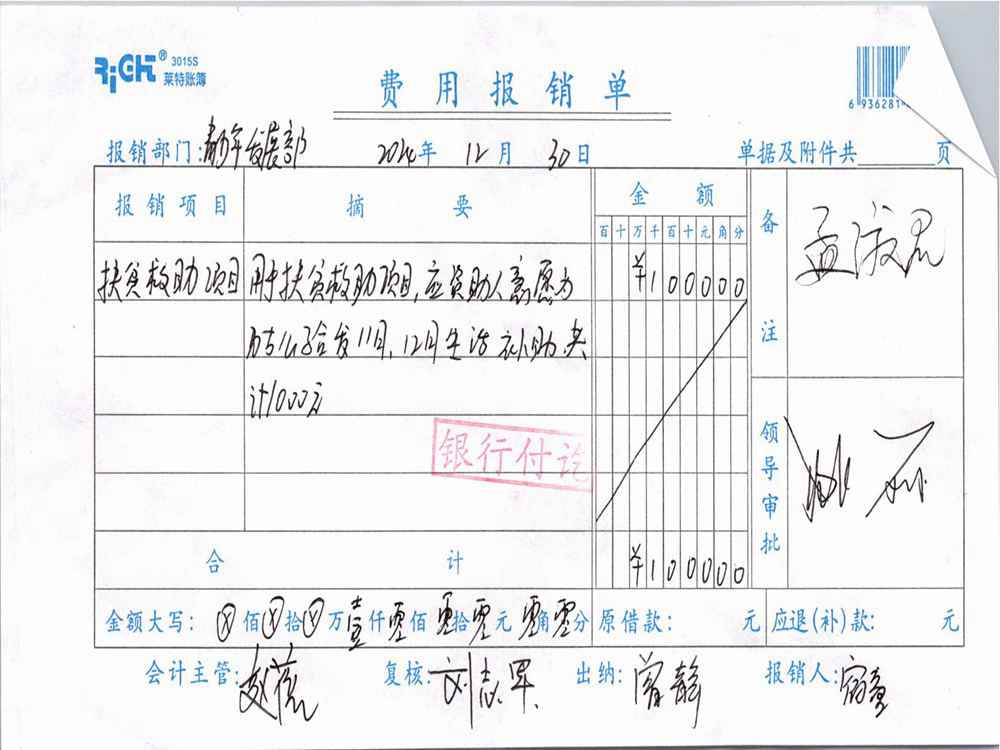 RiGHT® 3015S
莱特账簿
费用报销单
6 936281
报销部门:青年发展部 2024年 12月 30日 单据及附件共 页
报销项目 摘要 金额 备注
百十万千百十元角分
扶贫救助项目 用于扶贫救助项目,应资助人意愿为 ¥100000
给发11月,12月生活补助共
计1000元
银行付讫
领导审批
合计 ¥100000
金额大写: ⊗佰⊗拾⊗万壹仟零佰零拾零元零角零分 原借款: 元 应退(补)款: 元
会计主管: 复核: 刘志军 出纳: 曾静 报销人: